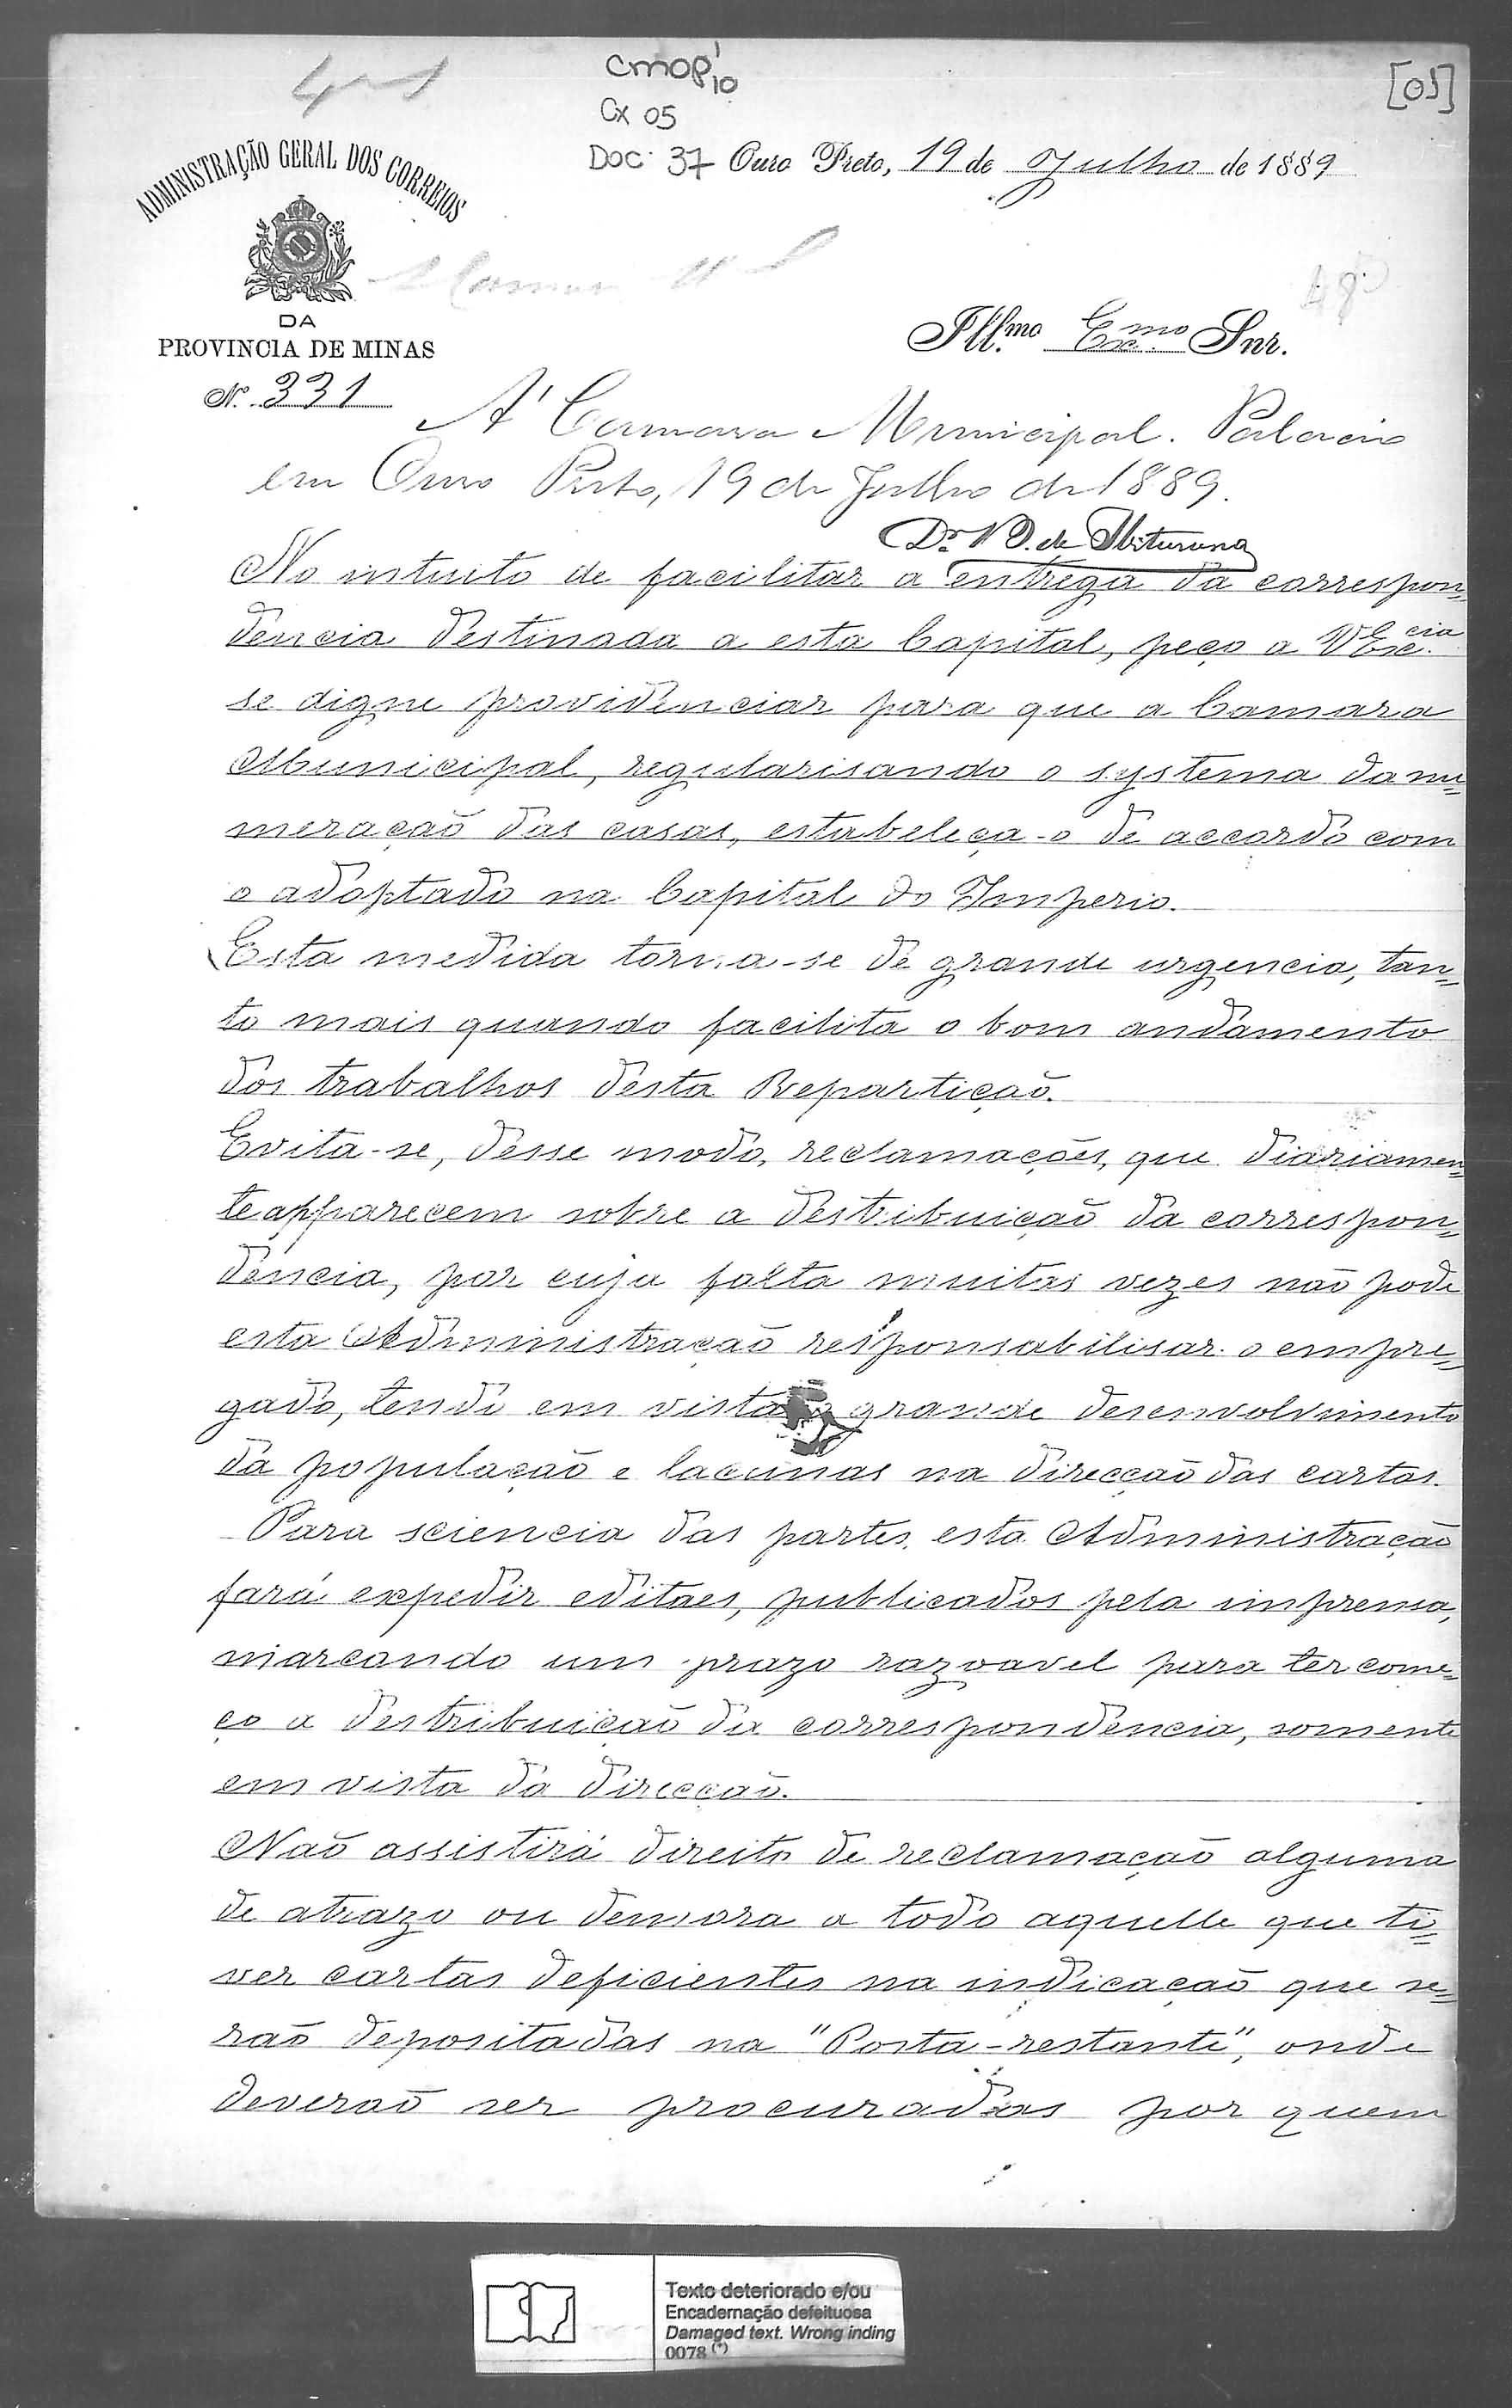 CMOP 10
[05]
Cx 05
DOC. 37 Ouro Preto, 19 de Julho de 1889
ADMINISTRAÇÃO GERAL DOS CORREIOS
DA
PROVINCIA DE MINAS
Nº. 331
Ill.mo Ex.mo Snr.
A' Camara Municipal. Palacio
em Ouro Preto, 19 de Julho de 1889.
Dr. V. de Ibituruna
No intuito de facilitar a entrega da correspon=
dencia destinada a esta Capital, peço a V. Exc.cia
se digne providenciar para que a Camara
Municipal, regularisando o systema da nu=
meração das casas, estabeleça-o de accordo com
o adoptado na Capital do Imperio.
Esta medida torna-se de grande urgencia, tan=
to mais quando facilita o bom andamento
dos trabalhos desta Repartição.
Evita-se, desse modo, reclamações, que diariamen=
te apparecem sobre a destribuição da correspon=
dencia, por cuja falta muitas vezes não pode
esta Administração responsabilisar o empre=
gado, tendo em vista grande desenvolvimento
da população e lacunas na direcção das cartas.
Para sciencia das partes, esta Administração
fará expedir editaes, publicados pela imprensa,
marcando um prazo razoavel para ter come=
ço a destribuição da correspondencia, somente
em vista da direcção.
Não assistirá direito de reclamação alguma
de atrazo ou demora a todo aquelle que ti=
ver cartas deficientes na indicação que se=
rão depositadas na "Posta-restante", onde
deverão ser procuradas por quem
Texto deteriorado e/ou
Encadernação defeituosa
Damaged text. Wrong inding
0078 (*)